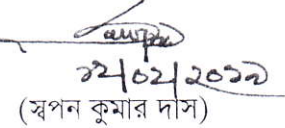 ১২/০২/২০১৯
(স্বপন কুমার দাস)